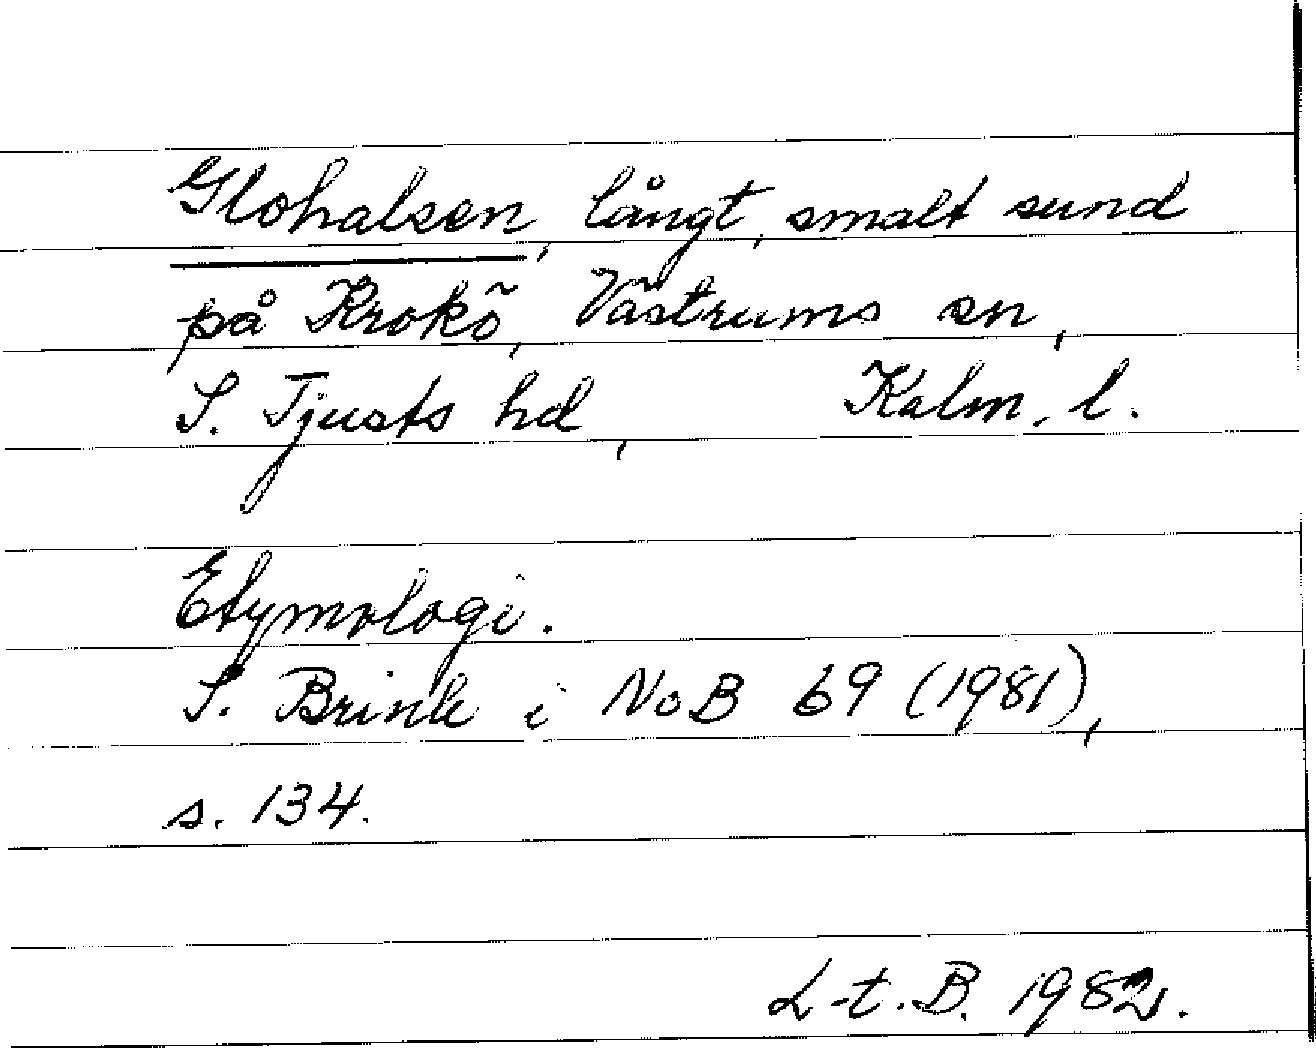 Glohalsen, långt, smalt sund
på Krokö, Västrums sn,
S. Tjusts hd, Kalm. l.
Etymologi.
S. Brink i NoB 69 (1981),
s. 134.
L-t. B. 1982.